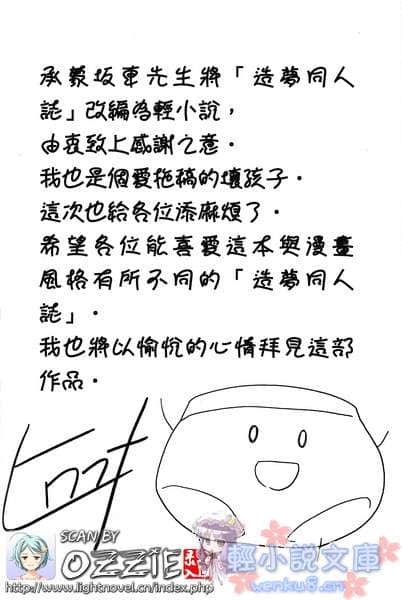 承蒙坂東先生將「造夢同人
誌」改編為輕小說，
由衷致上感謝之意．
我也是個愛拖稿的壞孩子．
這次也給各位添麻煩了．
希望各位能喜愛這本與漫畫
風格有所不同的「造夢同人
誌」．
我也將以愉悅的心情拜見這部
作品．
ヒロユキ
SCAN BY
OZZIE
輕小說文庫
http://www.lightnovel.cn/index.php
wenku8.cn